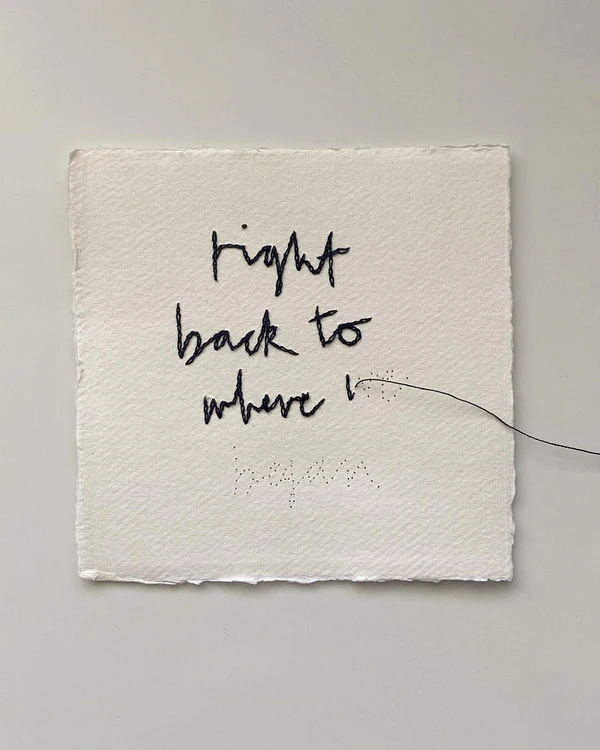 right
back to
where we
began